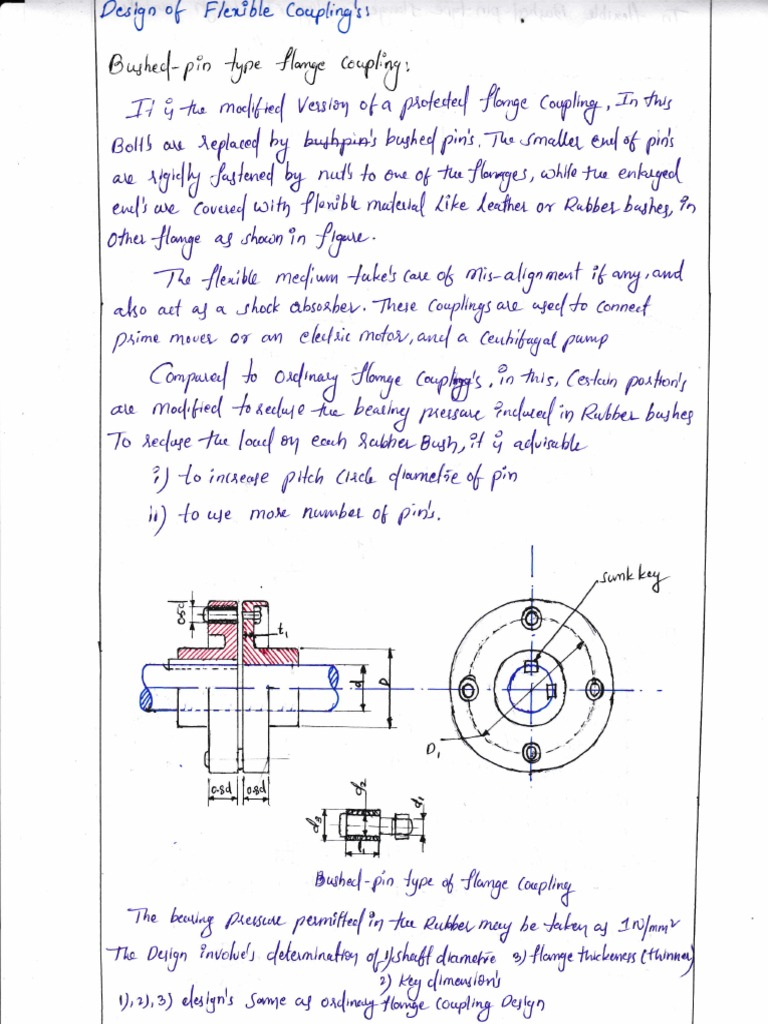 Design of Flexible Coupling's:
Bushed-pin type flange coupling:
It is the modified version of a protected flange coupling, In this
Bolts are replaced by bushpin's bushed pin's. The smaller end of pin's
are rigidly fastened by nut's to one of the flanges, while the enlarged
end's are covered with flexible material like leather or Rubber bushes, in
other flange as shown in figure.
The flexible medium take's care of mis-alignment if any, and
also act as a shock absorber. These couplings are used to connect
prime mover or an electric motor, and a centrifugal pump
Compared to ordinary flange coupling's, in this, certain portion's
are modified to reduse the bearing pressure induced in Rubber bushes
To reduse the load on each rubber Bush, it is advisable
i) to increase pitch circle diametre of pin
ii) to use more number of pin's.
sunk key
0.5d
t1
d
D
D1
0.8d 0.8d
d3
d2
d1
l1
Bushed-pin type of flange coupling
The bearing pressure permitted in the Rubber may be taken as 1 N/mm²
The Design involve's determination of 1) shaft diametre 3) flange thickeness (thinner)
2) key dimension's
1), 2), 3) design's same as ordinary flange coupling Design